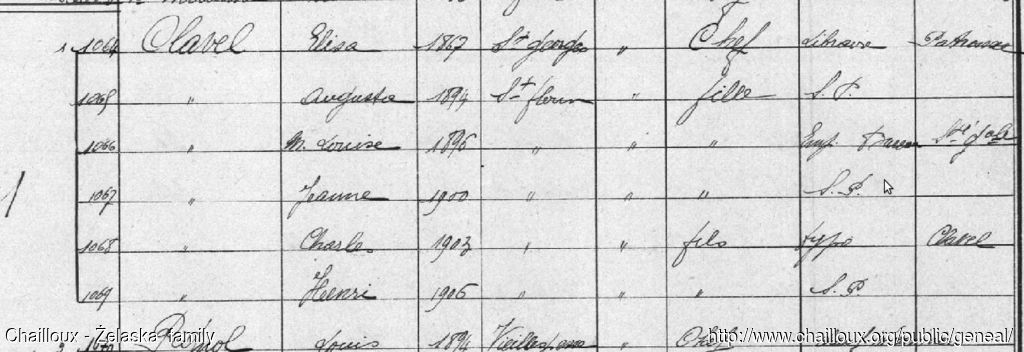 1 1064 Clavel Elisa 1867 St Georges " Chef Libraire Patronne
1065 " Augusta 1894 St flour " fille S. P.
1066 " M. Louise 1896 " " " Emp.
1067 " Jeanne 1900 " " " S. P.
1068 " Charles 1903 " " fils typo Clavel
1069 " Henri 1906 " " " S. P.
2 1070 Louis 1894
Chailloux - Želaska family
http://www.chailloux.org/public/geneal/